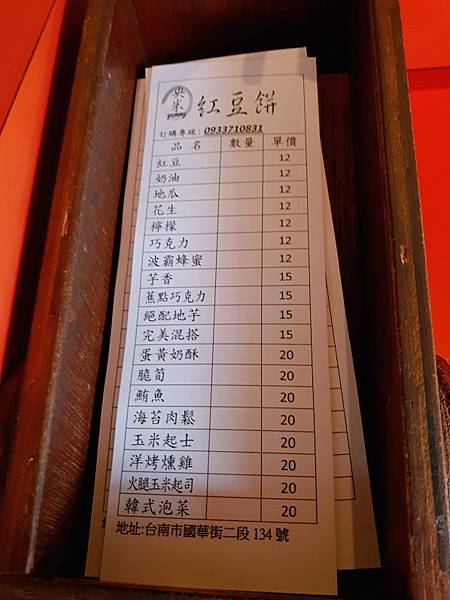 央米
紅豆餅
訂購專線: 0933710831
品名 數量 單價
紅豆 12
奶油 12
地瓜 12
花生 12
檸檬 12
巧克力 12
波霸蜂蜜 12
芋香 15
蕉點巧克力 15
絕配地芋 15
完美混搭 15
蛋黃奶酥 20
脆筍 20
鮪魚 20
海苔肉鬆 20
玉米起士 20
洋烤燻雞 20
火腿玉米起司 20
韓式泡菜 20
地址:台南市國華街二段 134 號